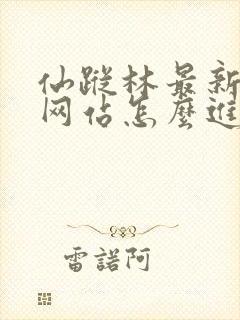 仙蹤林最新
网佔怎麼進
雷諾阿